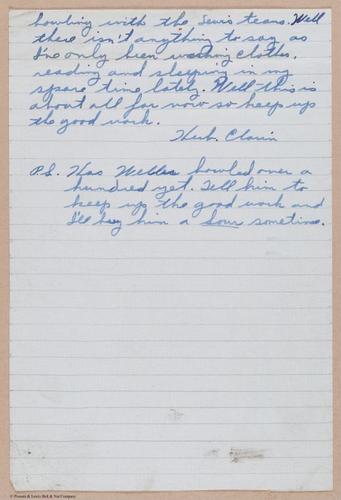 bowling with the Lewis teams. Well
there isn't anything to say as
I've only been washing clothes,
reading and sleeping in my
spare time lately. Well this is
about all for now so keep up
the good work.
Herb. Clarin
P.S. Has Webber bowled over a
hundred yet. Tell him to
keep up the good work and
I'll buy him a sour sometime.
© Parents & Lewis Bolt & Nut Company